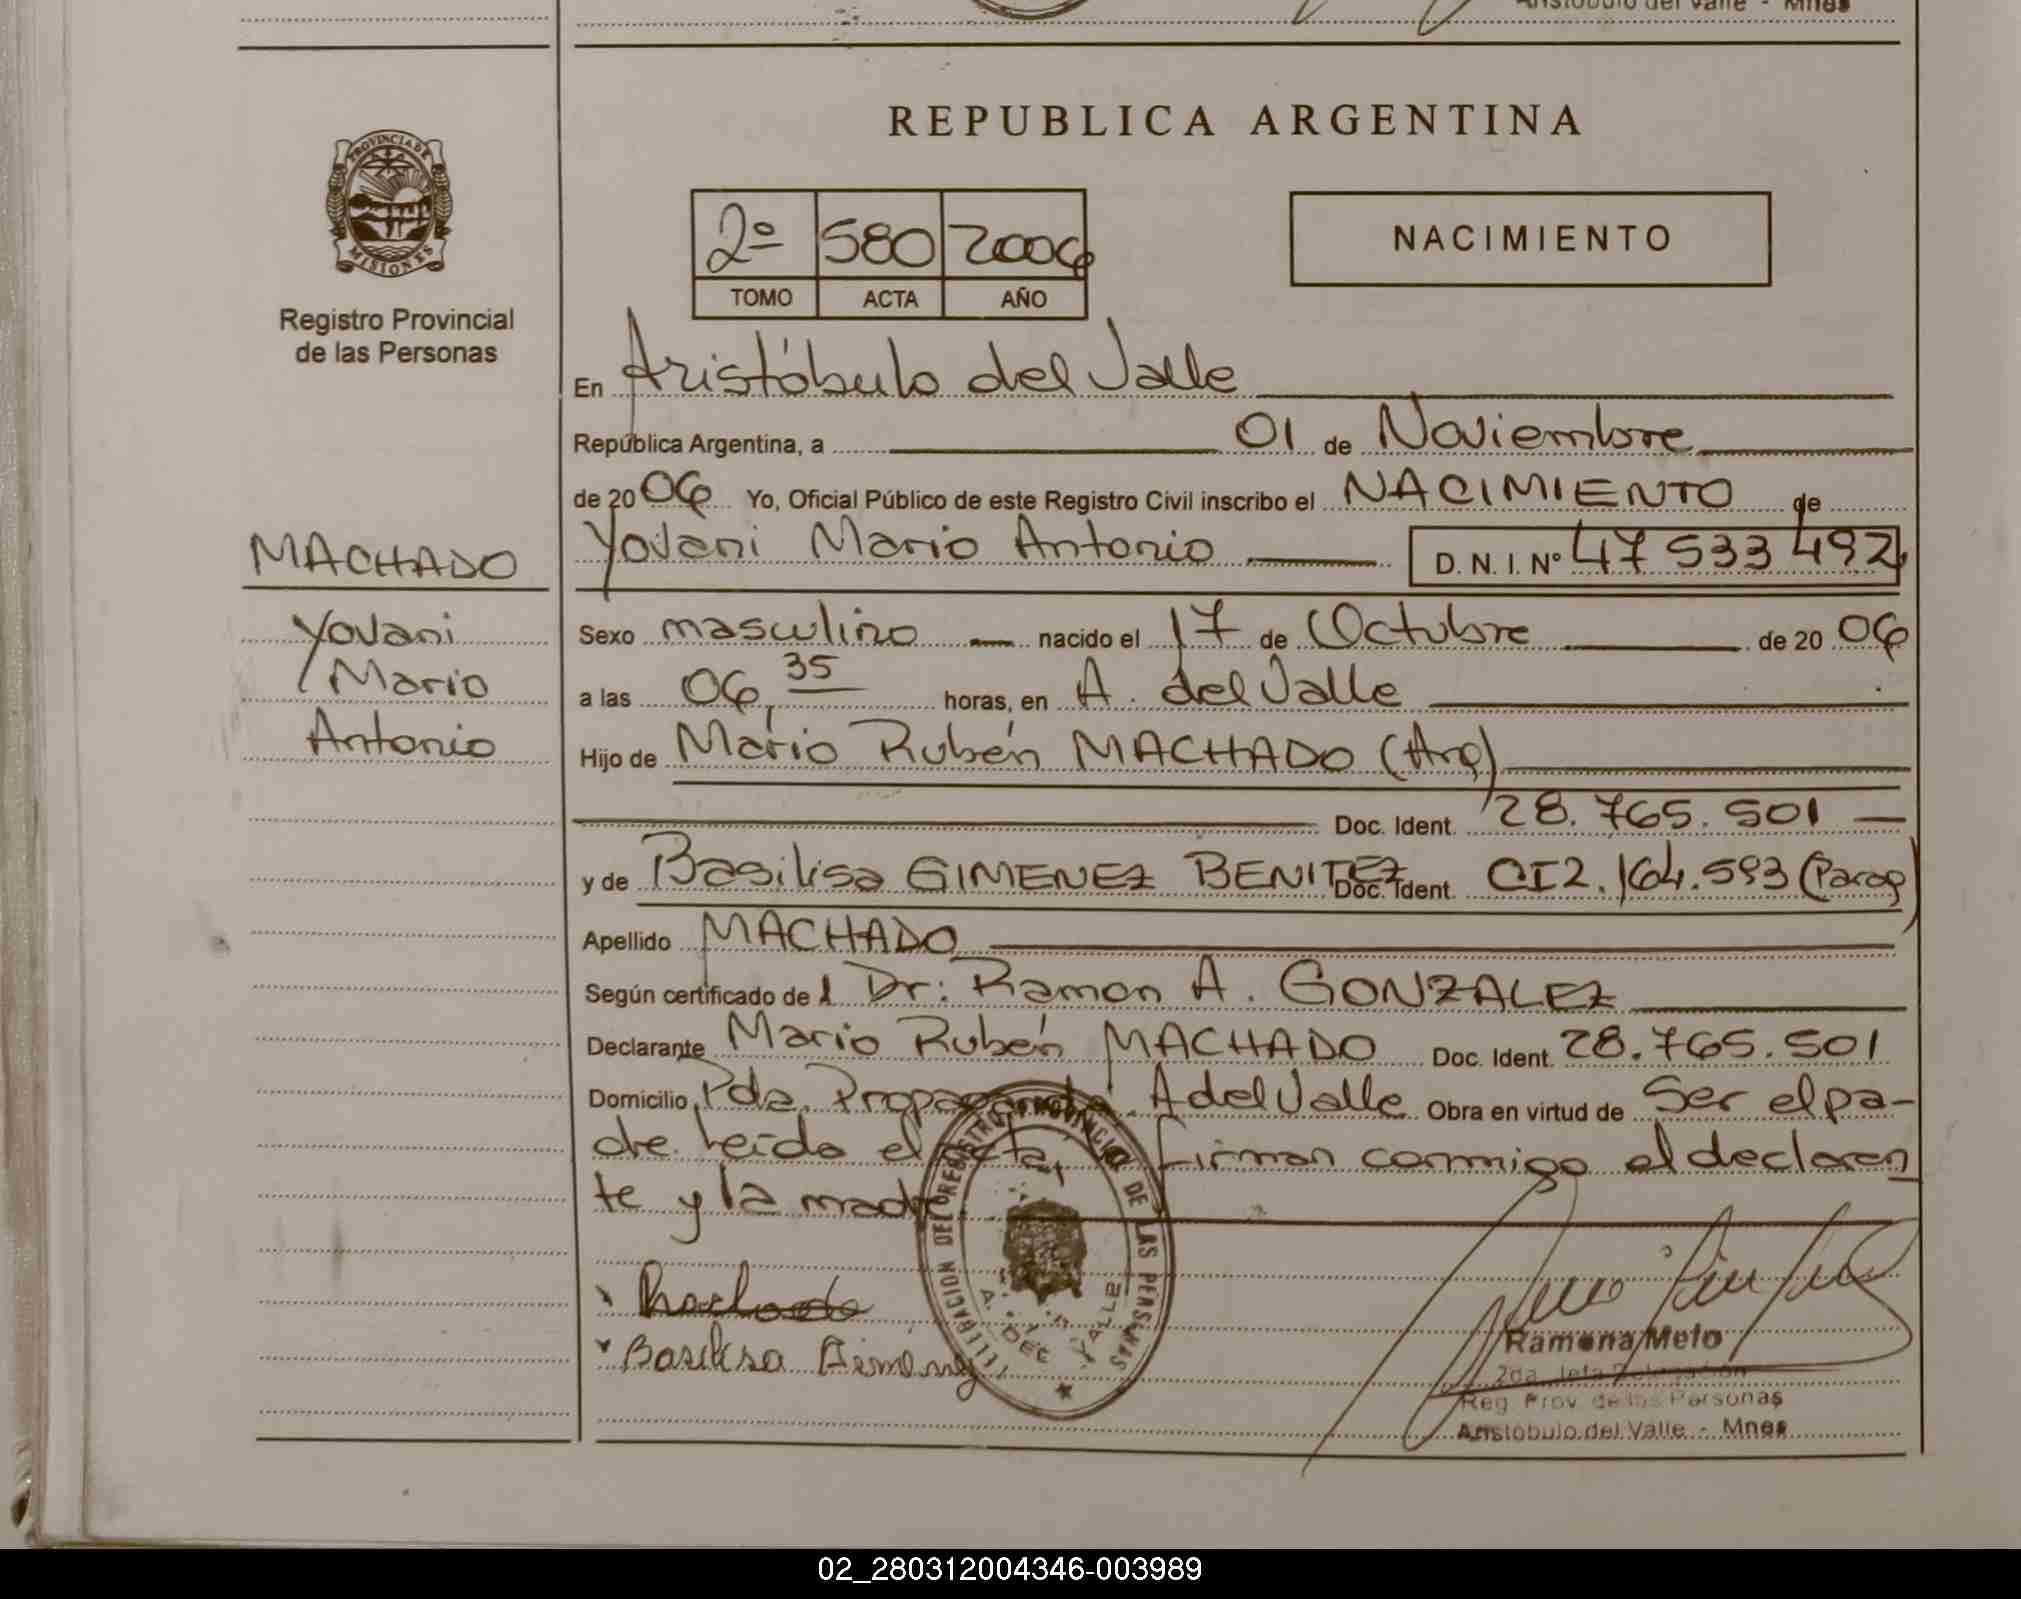 Aristóbulo del Valle - Mnes
REPUBLICA ARGENTINA
PROVINCIA DE
MISIONES
Registro Provincial
de las Personas
2º 580 2006
TOMO ACTA AÑO
NACIMIENTO
En Aristóbulo del Valle
República Argentina, a 01 de Noviembre
de 2006 Yo, Oficial Público de este Registro Civil inscribo el NACIMIENTO de
MACHADO
Yovani Mario Antonio D. N. I. Nº 47 533 492
Yovani
Mario
Antonio
Sexo masculino nacido el 17 de Octubre de 20 06
a las 06,35 horas, en A. del Valle
Hijo de Mario Rubén MACHADO (Arg)
Doc. Ident. 28.765.501
y de Basilisa GIMENEZ BENITEZ Doc. Ident. CI2.164.593 (Parag)
Apellido MACHADO
Según certificado de l Dr: Ramon A. GONZALEZ
Declarante Mario Rubén MACHADO Doc. Ident. 28.765.501
Domicilio Pda. Propaganda. A del Valle Obra en virtud de Ser el pa-
dre. Leída el acta, firman conmigo el declaran
te y la madre
Machado
Basilisa Gimenez
DELEGACION DEL REGISTRO PROVINCIAL DE LAS PERSONAS
A. DEL VALLE
Ramona Melo
2da. Jefa Delegación
Reg. Prov. de las Personas
Aristóbulo del Valle - Mnes
02_280312004346-003989